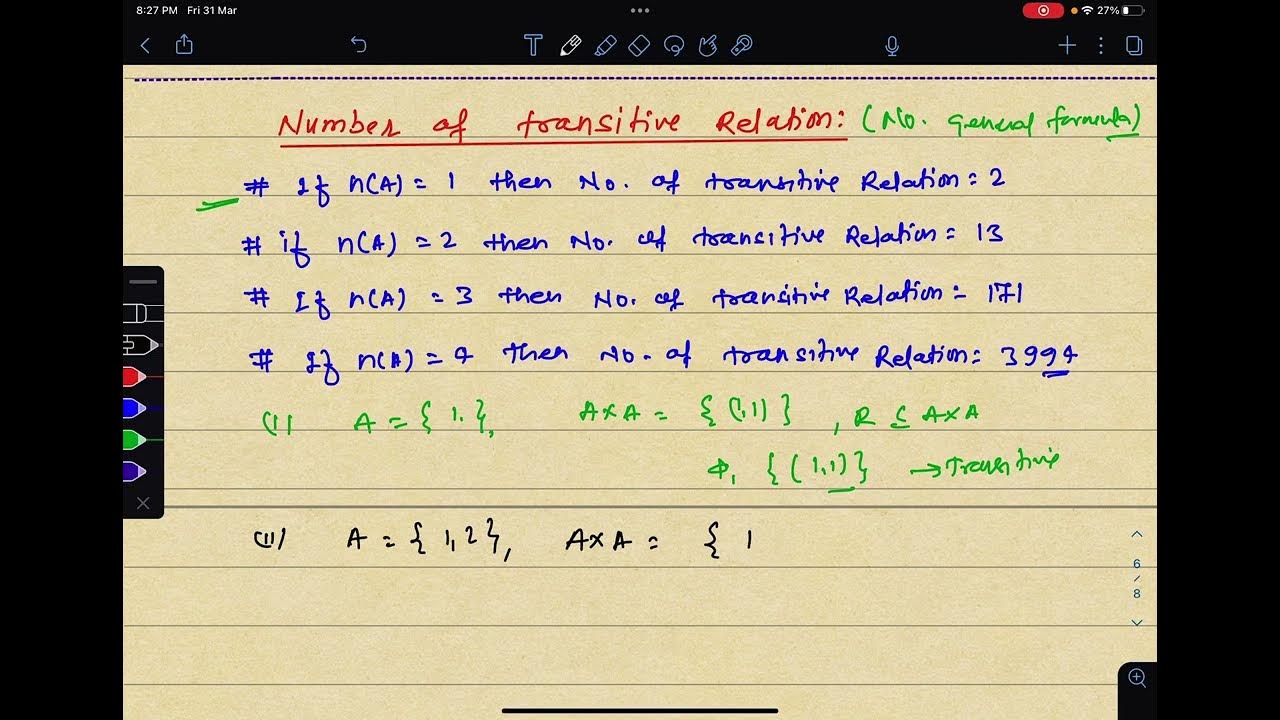 8:27 PM Fri 31 Mar
27%
T
Number of transitive Relation: (No. general formula)
# If n(A) = 1 then No. of transitive Relation = 2
# if n(A) = 2 then No. of transitive Relation = 13
# If n(A) = 3 then No. of transitive Relation = 171
# If n(A) = 4 then No. of transitive Relation = 3994
(i) A = { 1, }, A×A = { (1,1) } , R ⊆ A×A
Φ, { (1,1) } → Transitive
(ii) A = { 1, 2 }, A×A = { 1
6
/
8